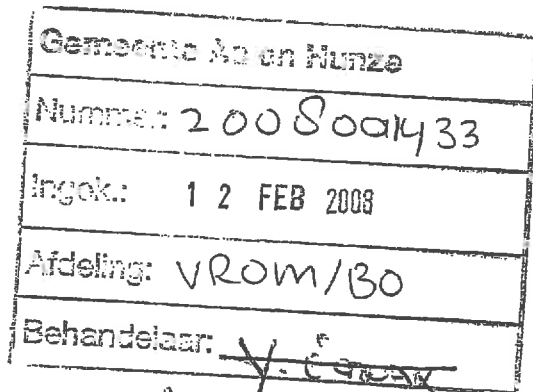 Gemeente Aa en Hunze
Nummer: 2008001433
Ingek.: 12 FEB 2008
Afdeling: VROM/BO
Behandelaar: Y.